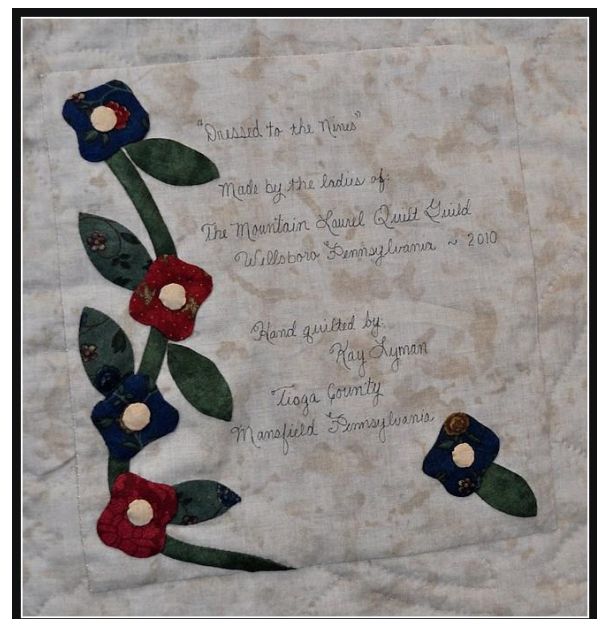 "Dressed to the Nines"
Made by the ladies of:
The Mountain Laurel Quilt Guild
Wellsboro Pennsylvania ~ 2010
Hand quilted by:
Kay Lyman
Tioga County
Mansfield Pennsylvania